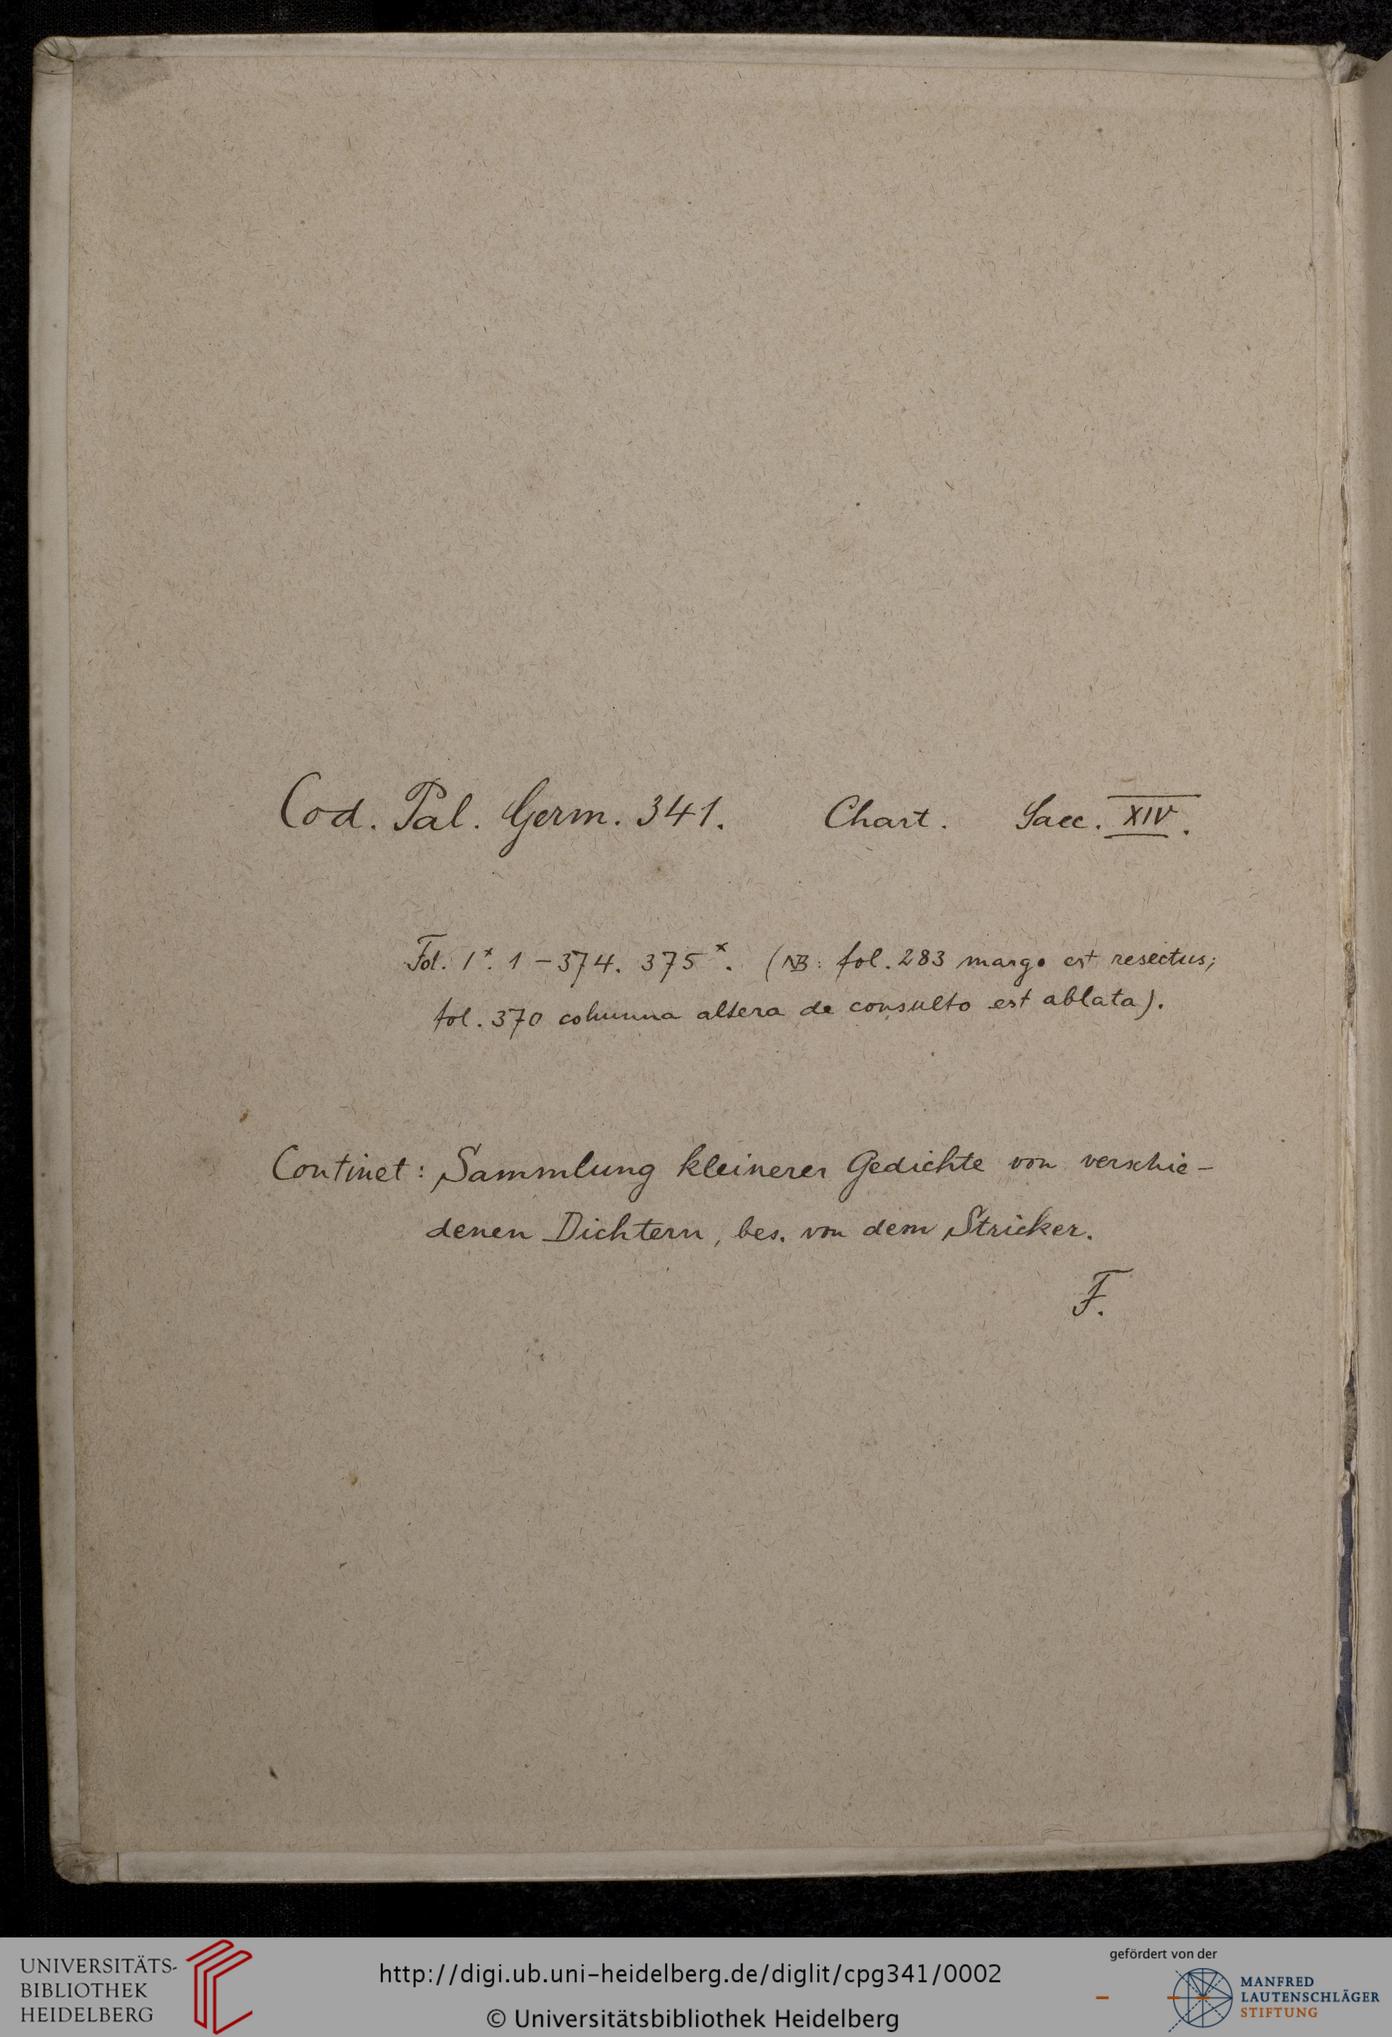 Cod. Pal. Germ. 341. Chart. Saec. XIV.
Fol. 1*. 1–374. 375*. (NB: fol. 283 margo est resectus;
fol. 370 columna altera de consulto est ablata).
Continet: Sammlung kleinerer Gedichte von verschie-
denen Dichtern, bes. von dem Stricker.
F.
UNIVERSITÄTS-
BIBLIOTHEK
HEIDELBERG
http://digi.ub.uni-heidelberg.de/diglit/cpg341/0002
© Universitätsbibliothek Heidelberg
gefördert von der
MANFRED
LAUTENSCHLÄGER
STIFTUNG